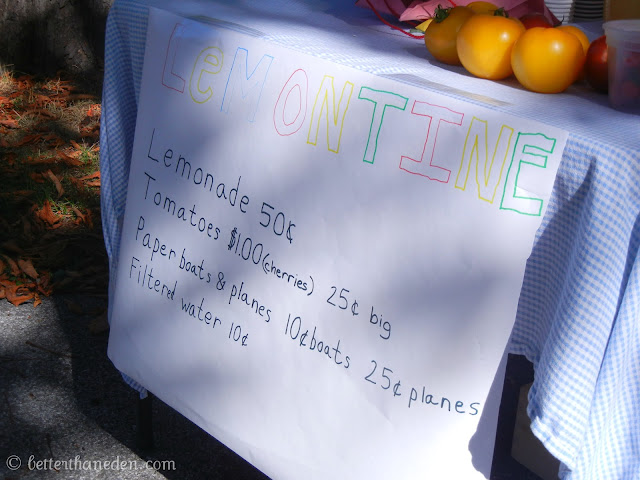 LeMONTINE
Lemonade 50¢
Tomatoes $1.00 (cherries) 25¢ big
Paper boats & planes 10¢ boats 25¢ planes
Filtered water 10¢
© betterthaneden.com